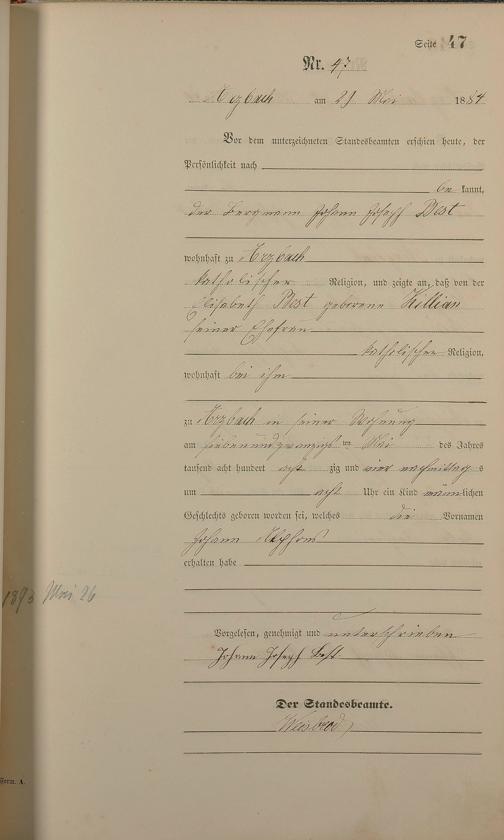 Seite 47
Nr. 47
Arzbach am 29 Mai 1884
Vor dem unterzeichneten Standesbeamten erschien heute, der
Persönlichkeit nach
be kannt,
der Bergmann Johann Joseph Best
wohnhaft zu Arzbach
katholischer Religion, und zeigte an, daß von der
Elisabeth Best geborene Killian
seiner Ehefrau
katholischer Religion,
wohnhaft bei ihm
zu Arzbach in seiner Wohnung
am siebenundzwanzigsten Mai des Jahres
tausend acht hundert acht zig und vier nachmittag s
um acht Uhr ein Kind männlichen
Geschlechts geboren worden sei, welches die Vornamen
Johann Alphons
erhalten habe
1893 Mai 26
Vorgelesen, genehmigt und unterschrieben
Johann Joseph Best
Der Standesbeamte.
Weisbrod
Form. A.